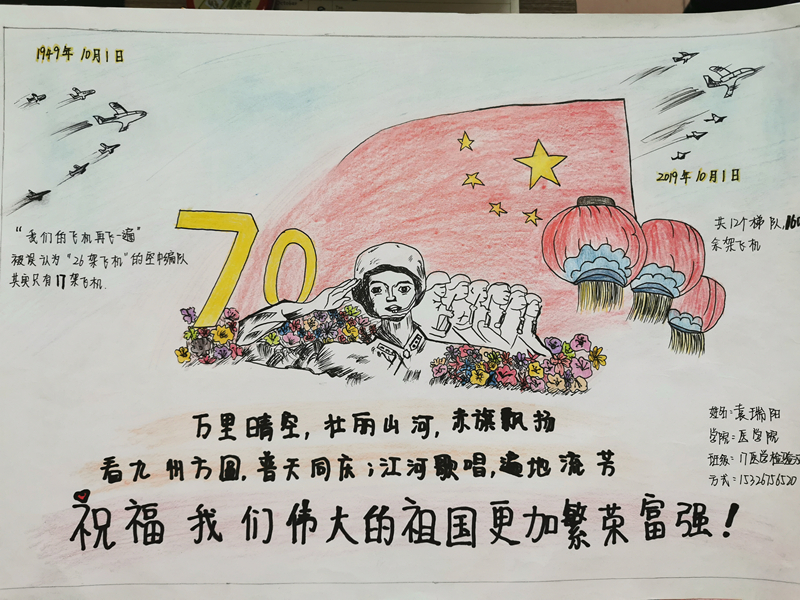 1949年10月1日
2019年10月1日
"我们的飞机再飞一遍"
被误认为"26架飞机"的空中编队
其实只有17架飞机.
共12个梯队,160
余架飞机
70
万里晴空,壮丽山河,赤旗飘扬
看九州方圆,普天同庆;江河歌唱,遍地流芳
祝福我们伟大的祖国更加繁荣富强!
姓名:袁瑞阳
学院:医学院
班级:17医学检验
方式:15326756520